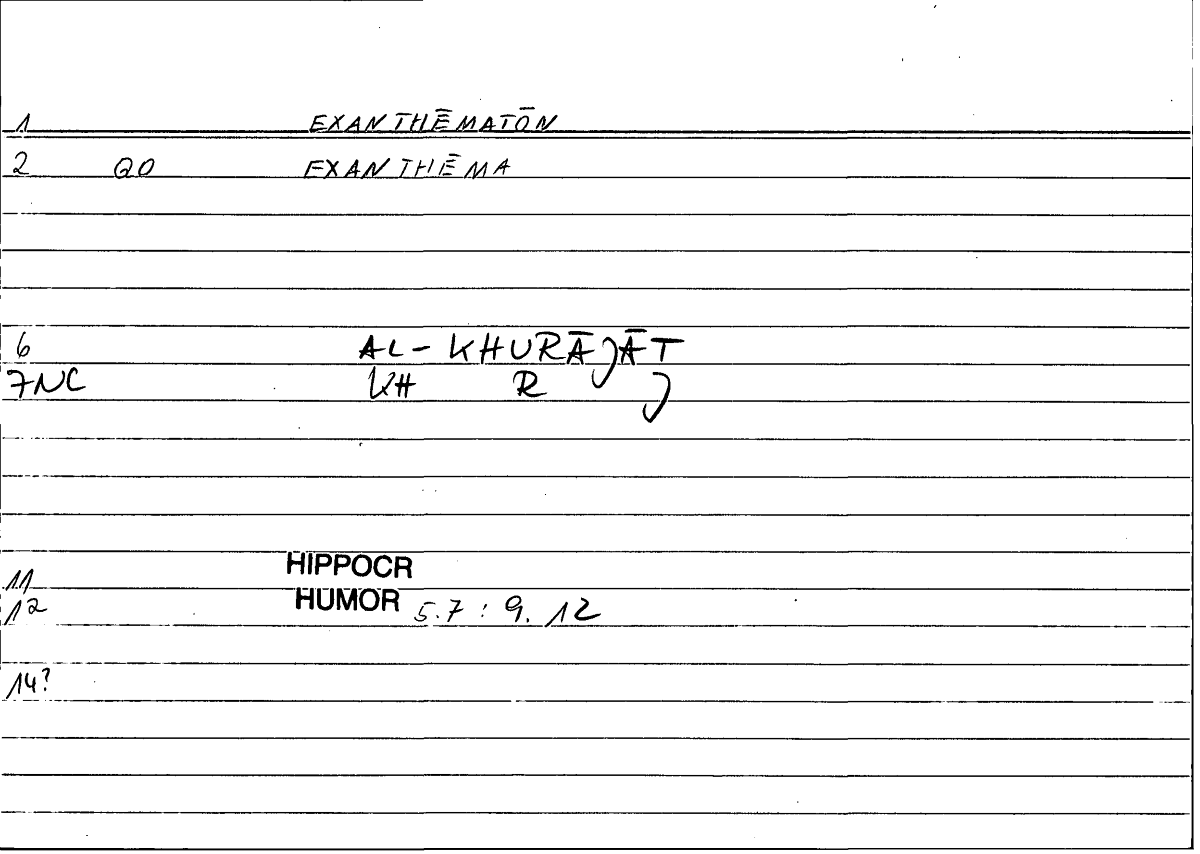 1 EXANTHĒMATŌN
2 QO EXANTHĒMA
6 AL-KHURĀJĀT
7NC KH R J
11 HIPPOCR
12 HUMOR 5.7 : 9.12
14?